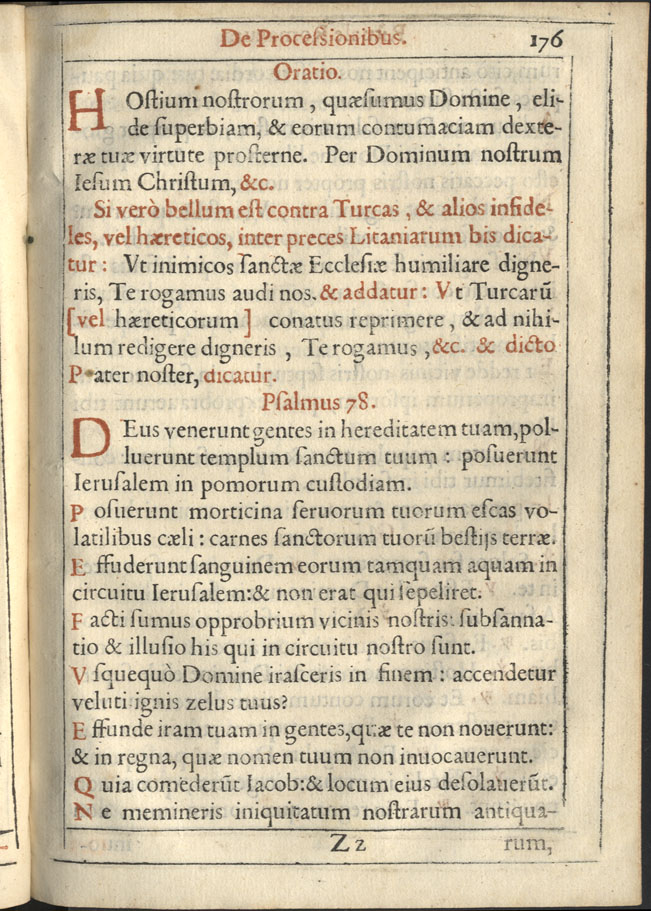 De Processionibus. 176
Oratio.
HOstium nostrorum, quæsumus Domine, eli-
de superbiam, & eorum contumaciam dexte-
ræ tuæ virtute prosterne. Per Dominum nostrum
Iesum Christum, &c.
Si verò bellum est contra Turcas, & alios infide-
les, vel hæreticos, inter preces Litaniarum bis dica-
tur: Vt inimicos sanctæ Ecclesiæ humiliare digne-
ris, Te rogamus audi nos. & addatur: Vt Turcarū
[vel hæreticorum] conatus reprimere, & ad nihi-
lum redigere digneris, Te rogamus, &c. & dicto
Pater noster, dicatur.
Psalmus 78.
DEus venerunt gentes in hereditatem tuam, pol-
luerunt templum sanctum tuum: posuerunt
Ierusalem in pomorum custodiam.
Posuerunt morticina seruorum tuorum escas vo-
latilibus cæli: carnes sanctorum tuorū bestijs terræ.
Effuderunt sanguinem eorum tamquam aquam in
circuitu Ierusalem: & non erat qui sepeliret.
Facti sumus opprobrium vicinis nostris: subsanna-
tio & illusio his qui in circuitu nostro sunt.
Vsquequò Domine irasceris in finem: accendetur
veluti ignis zelus tuus?
Effunde iram tuam in gentes, quæ te non nouerunt:
& in regna, quæ nomen tuum non inuocauerunt.
Quia comederūt Iacob: & locum eius desolauerūt.
Ne memineris iniquitatum nostrarum antiqua-
Zz rum,